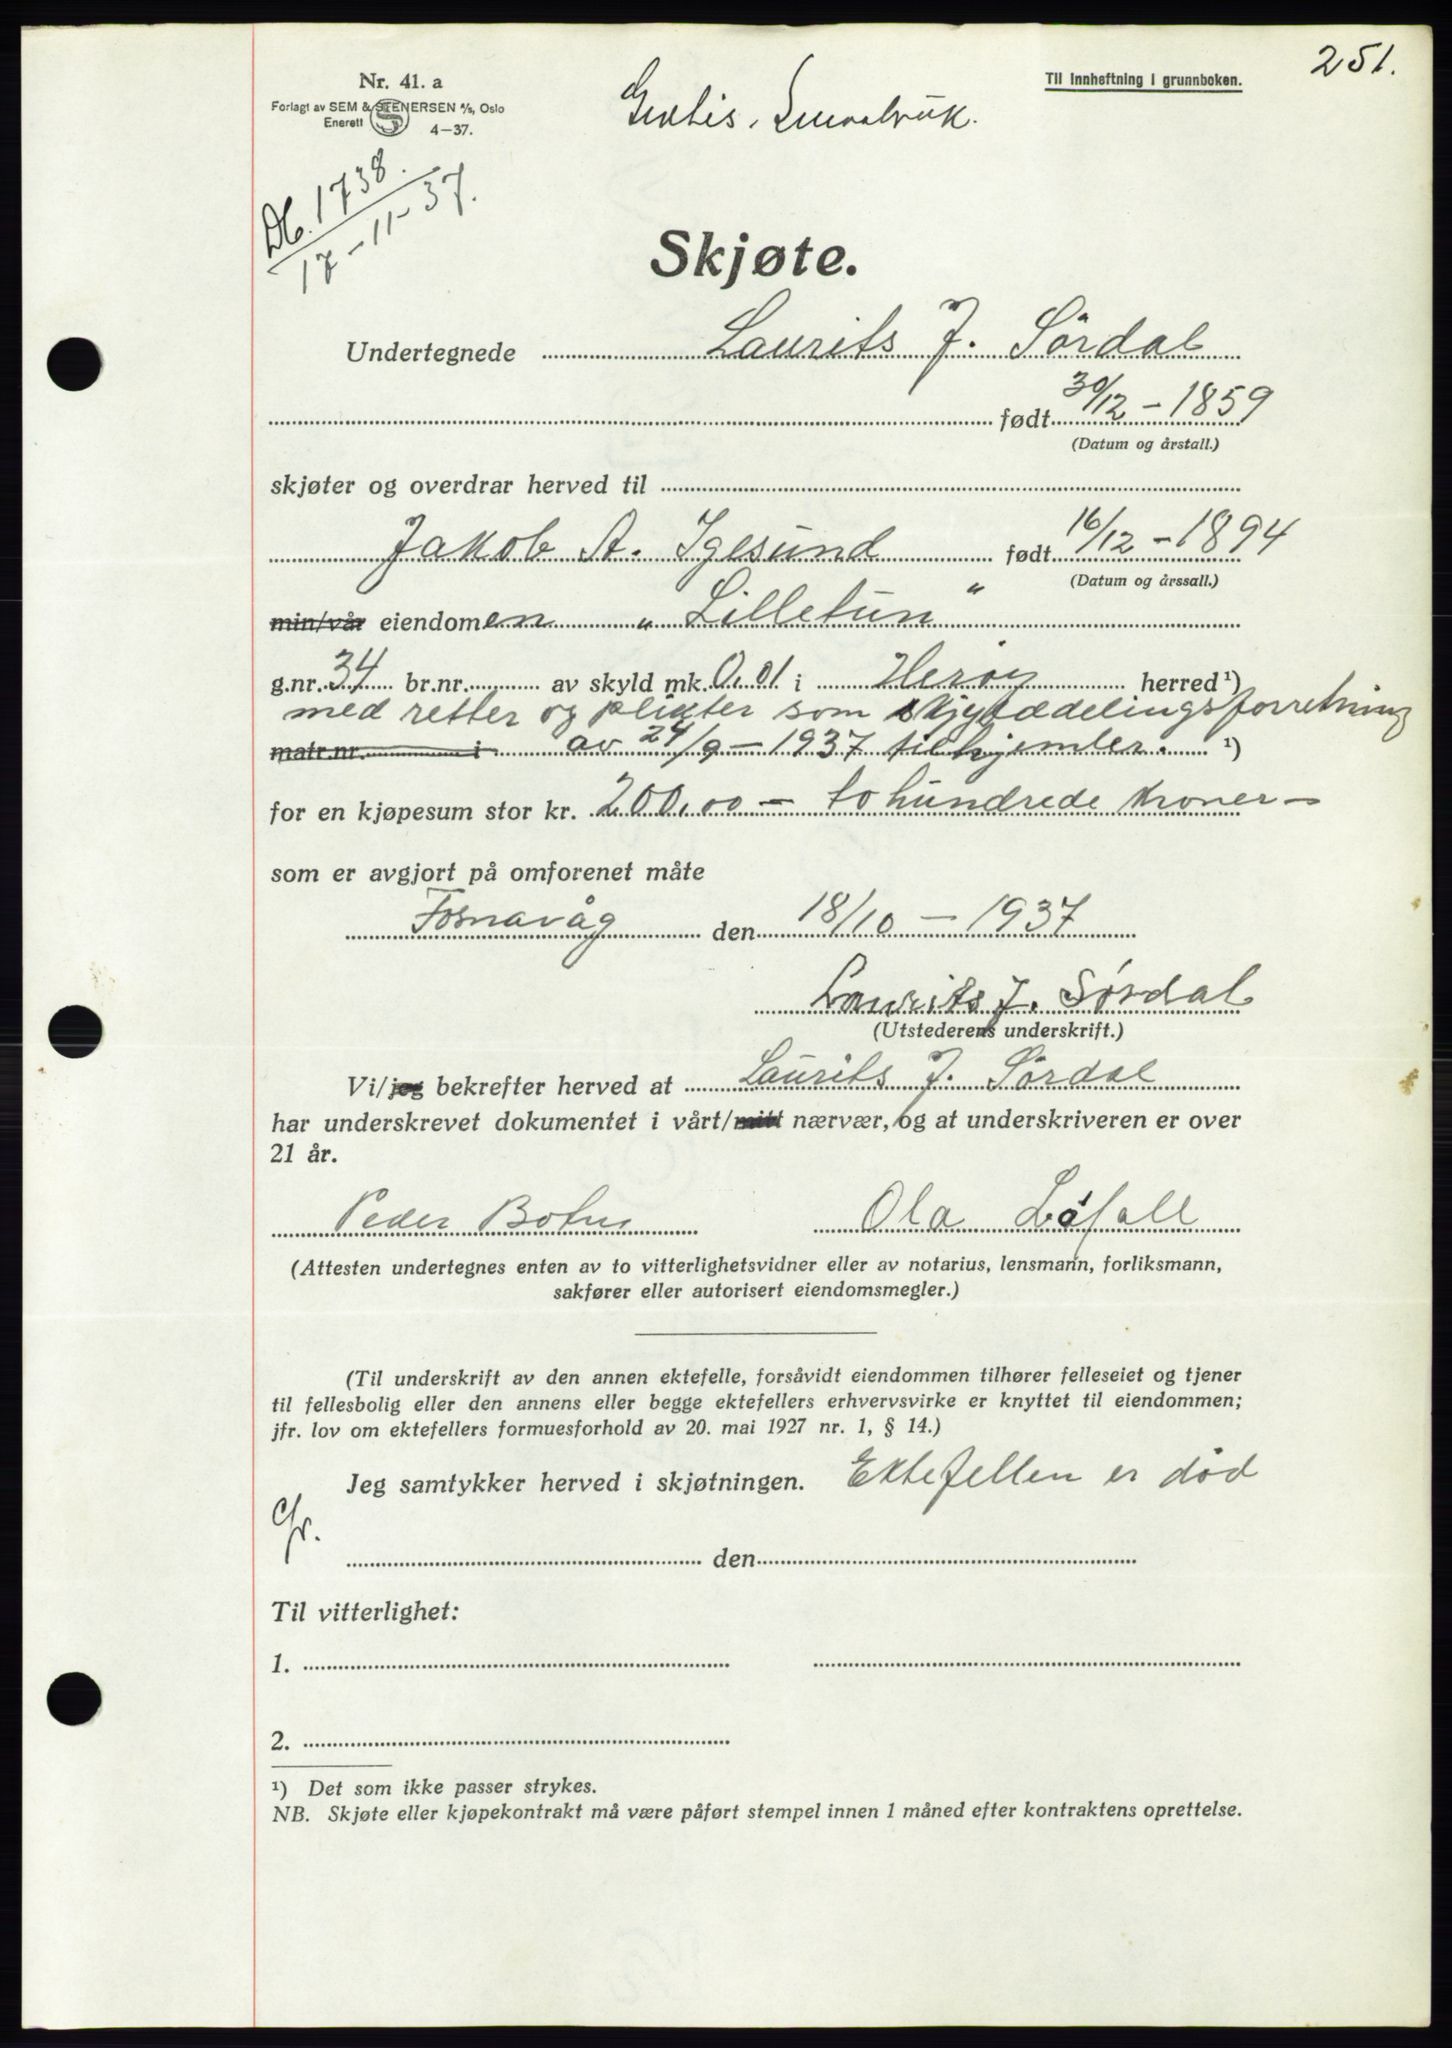 251.
Nr. 41. a
Forlagt av SEM & STENERSEN A/S, Oslo
Enerett 4—37.
Til innheftning i grunnboken.
Gratis. Smaabruk.
Db. 1738.
17-11-37.
Skjøte.
Undertegnede Laurits J. Sørdal
født 30/12 - 1859
(Datum og årstall.)
skjøter og overdrar herved til
Jakob A. Igesund født 16/12 - 1894
(Datum og årssall.)
min/vår eiendomen „Lilletun"
g.nr. 34 br.nr. av skyld mk. 0,01 i Herøy herred ¹)
med retter og plikter som skyldddelingsforretning
matr.nr. i av 24/9 - 1937 tilhjemler. ¹)
for en kjøpesum stor kr. 200,00 - tohundrede kroner -
som er avgjort på omforenet måte
Fosnavåg den 18/10 - 1937
Laurits J. Sørdal
(Utstederens underskrift.)
Vi/jeg bekrefter herved at Laurits J. Sørdal
har underskrevet dokumentet i vårt/mitt nærvær, og at underskriveren er over
21 år.
Peder Ola
(Attesten undertegnes enten av to vitterlighetsvidner eller av notarius, lensmann, forliksmann,
sakfører eller autorisert eiendomsmegler.)
(Til underskrift av den annen ektefelle, forsåvidt eiendommen tilhører felleseiet og tjener
til fellesbolig eller den annens eller begge ektefellers erhvervsvirke er knyttet til eiendommen;
jfr. lov om ektefellers formuesforhold av 20. mai 1927 nr. 1, § 14.)
Jeg samtykker herved i skjøtningen. Ektefellen er død
den
Til vitterlighet:
1.
2.
¹) Det som ikke passer strykes.
NB. Skjøte eller kjøpekontrakt må være påført stempel innen 1 måned efter kontraktens oprettelse.